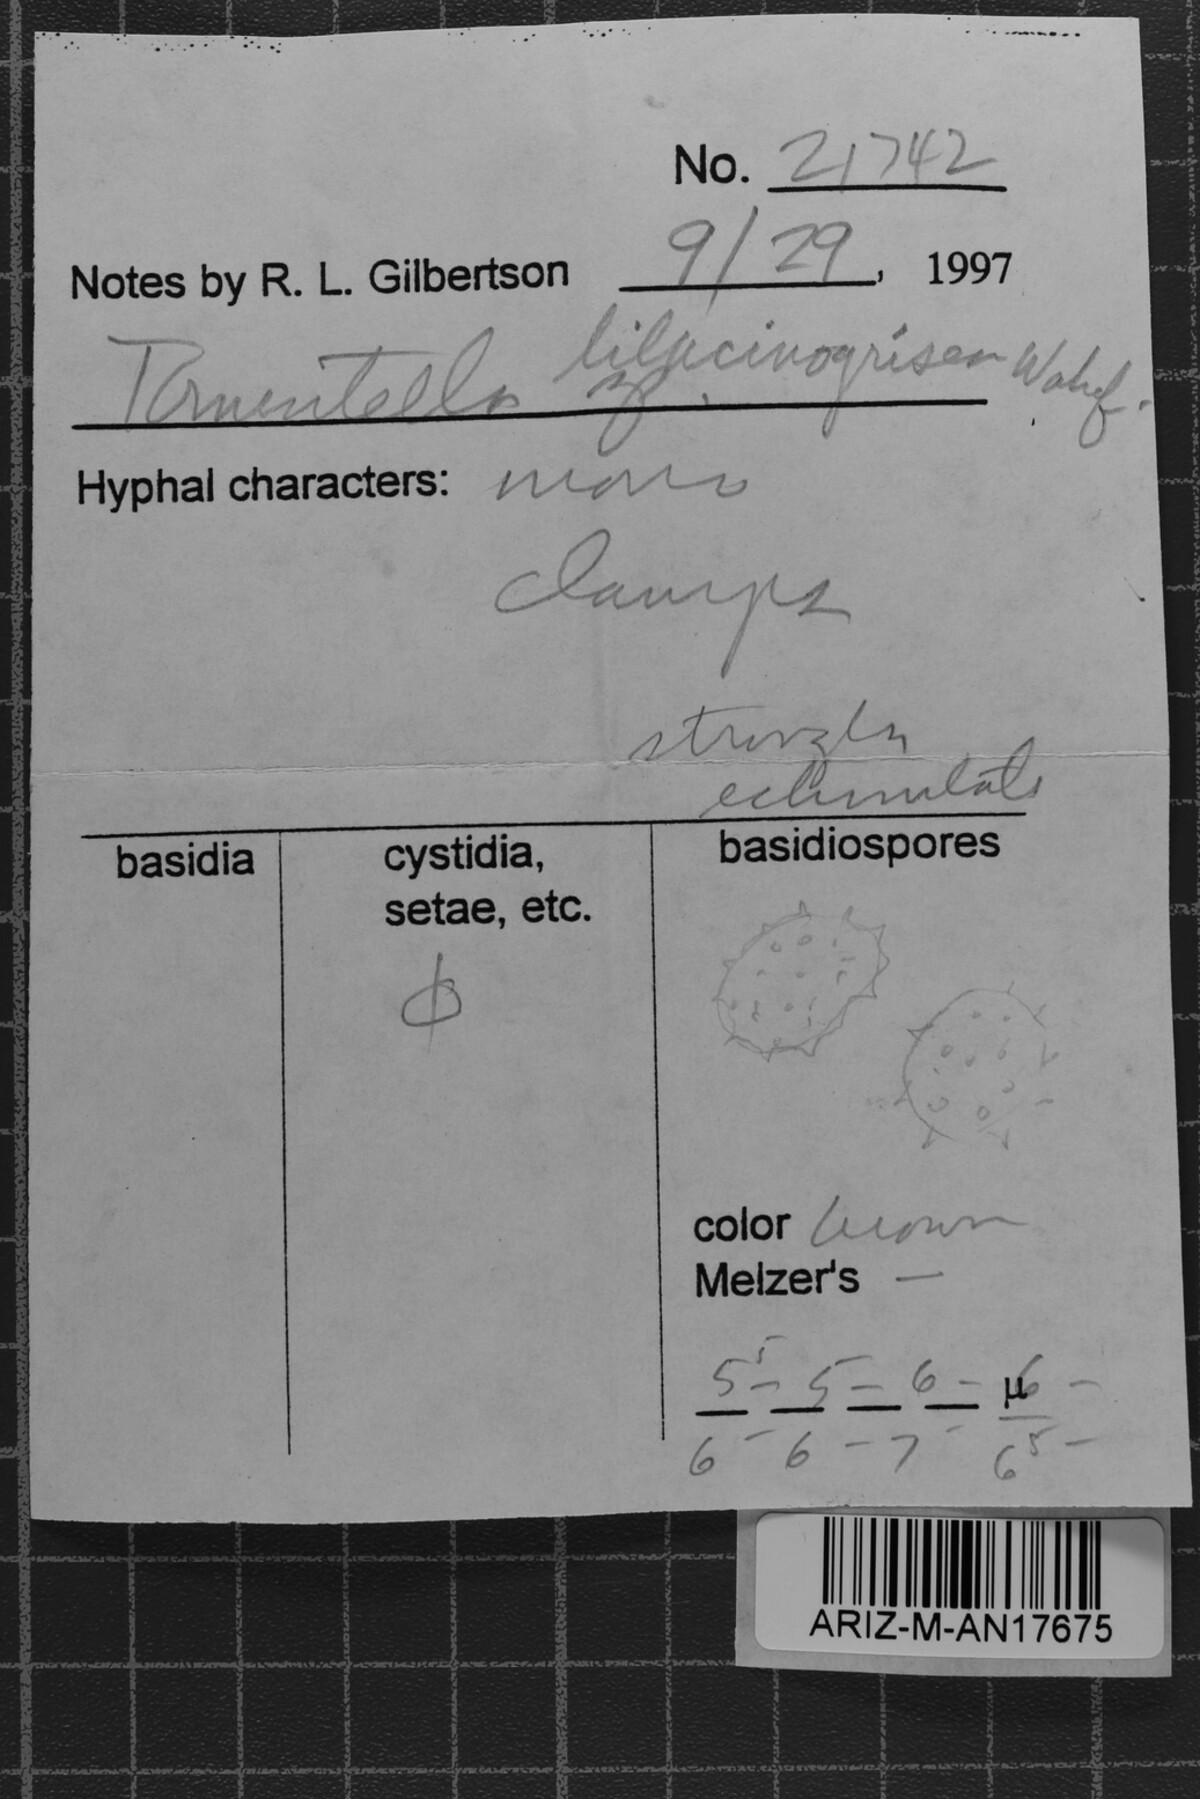 No. 21742
Notes by R. L. Gilbertson 9/29, 1997
Tomentella sp. lilacinogrisea Wakef.
Hyphal characters: mono
clamps
strongly
echinulate
basidia
cystidia,
setae, etc.
ϕ
basidiospores
color brown
Melzer's —
5⁵– 5– 6– µ6–
6– 6– 7– 6⁵–
ARIZ-M-AN17675